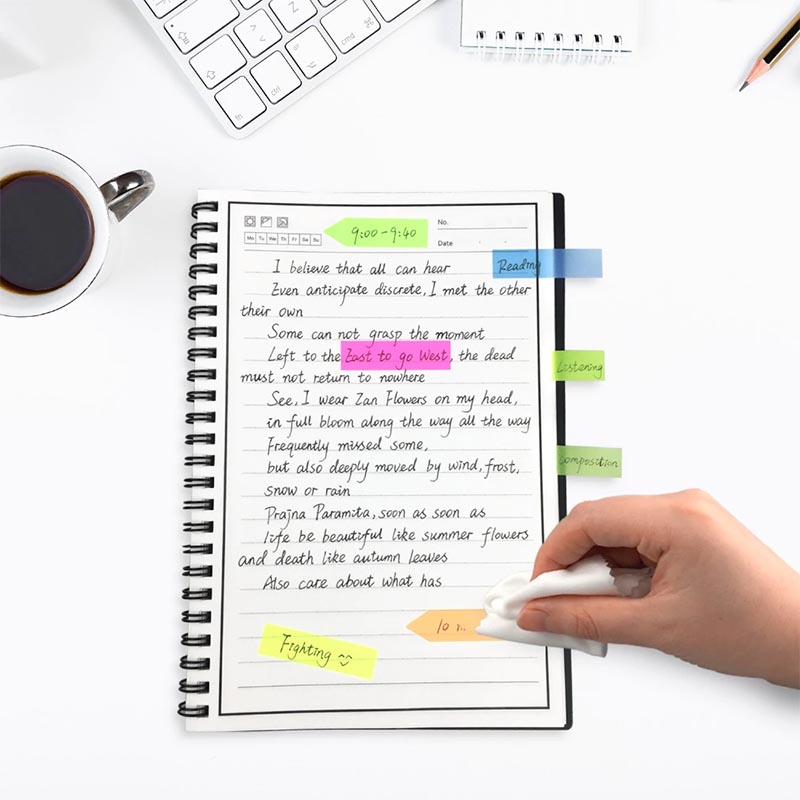 Z
cmd
alt
ctrl
fn
9:00-9:40
No.
Mo Tu We Th Fr Sa Su
Date
I believe that all can hear
Reading
Even anticipate discrete, I met the other
their own
Some can not grasp the moment
Left to the East to go West, the dead
Listening
must not return to nowhere
See, I wear Zan Flowers on my head,
in full bloom along the way all the way
Frequently missed some,
but also deeply moved by wind, frost,
Composition
snow or rain
Prajna Paramita, soon as soon as
life be beautiful like summer flowers
and death like autumn leaves
Also care about what has
10
Fighting